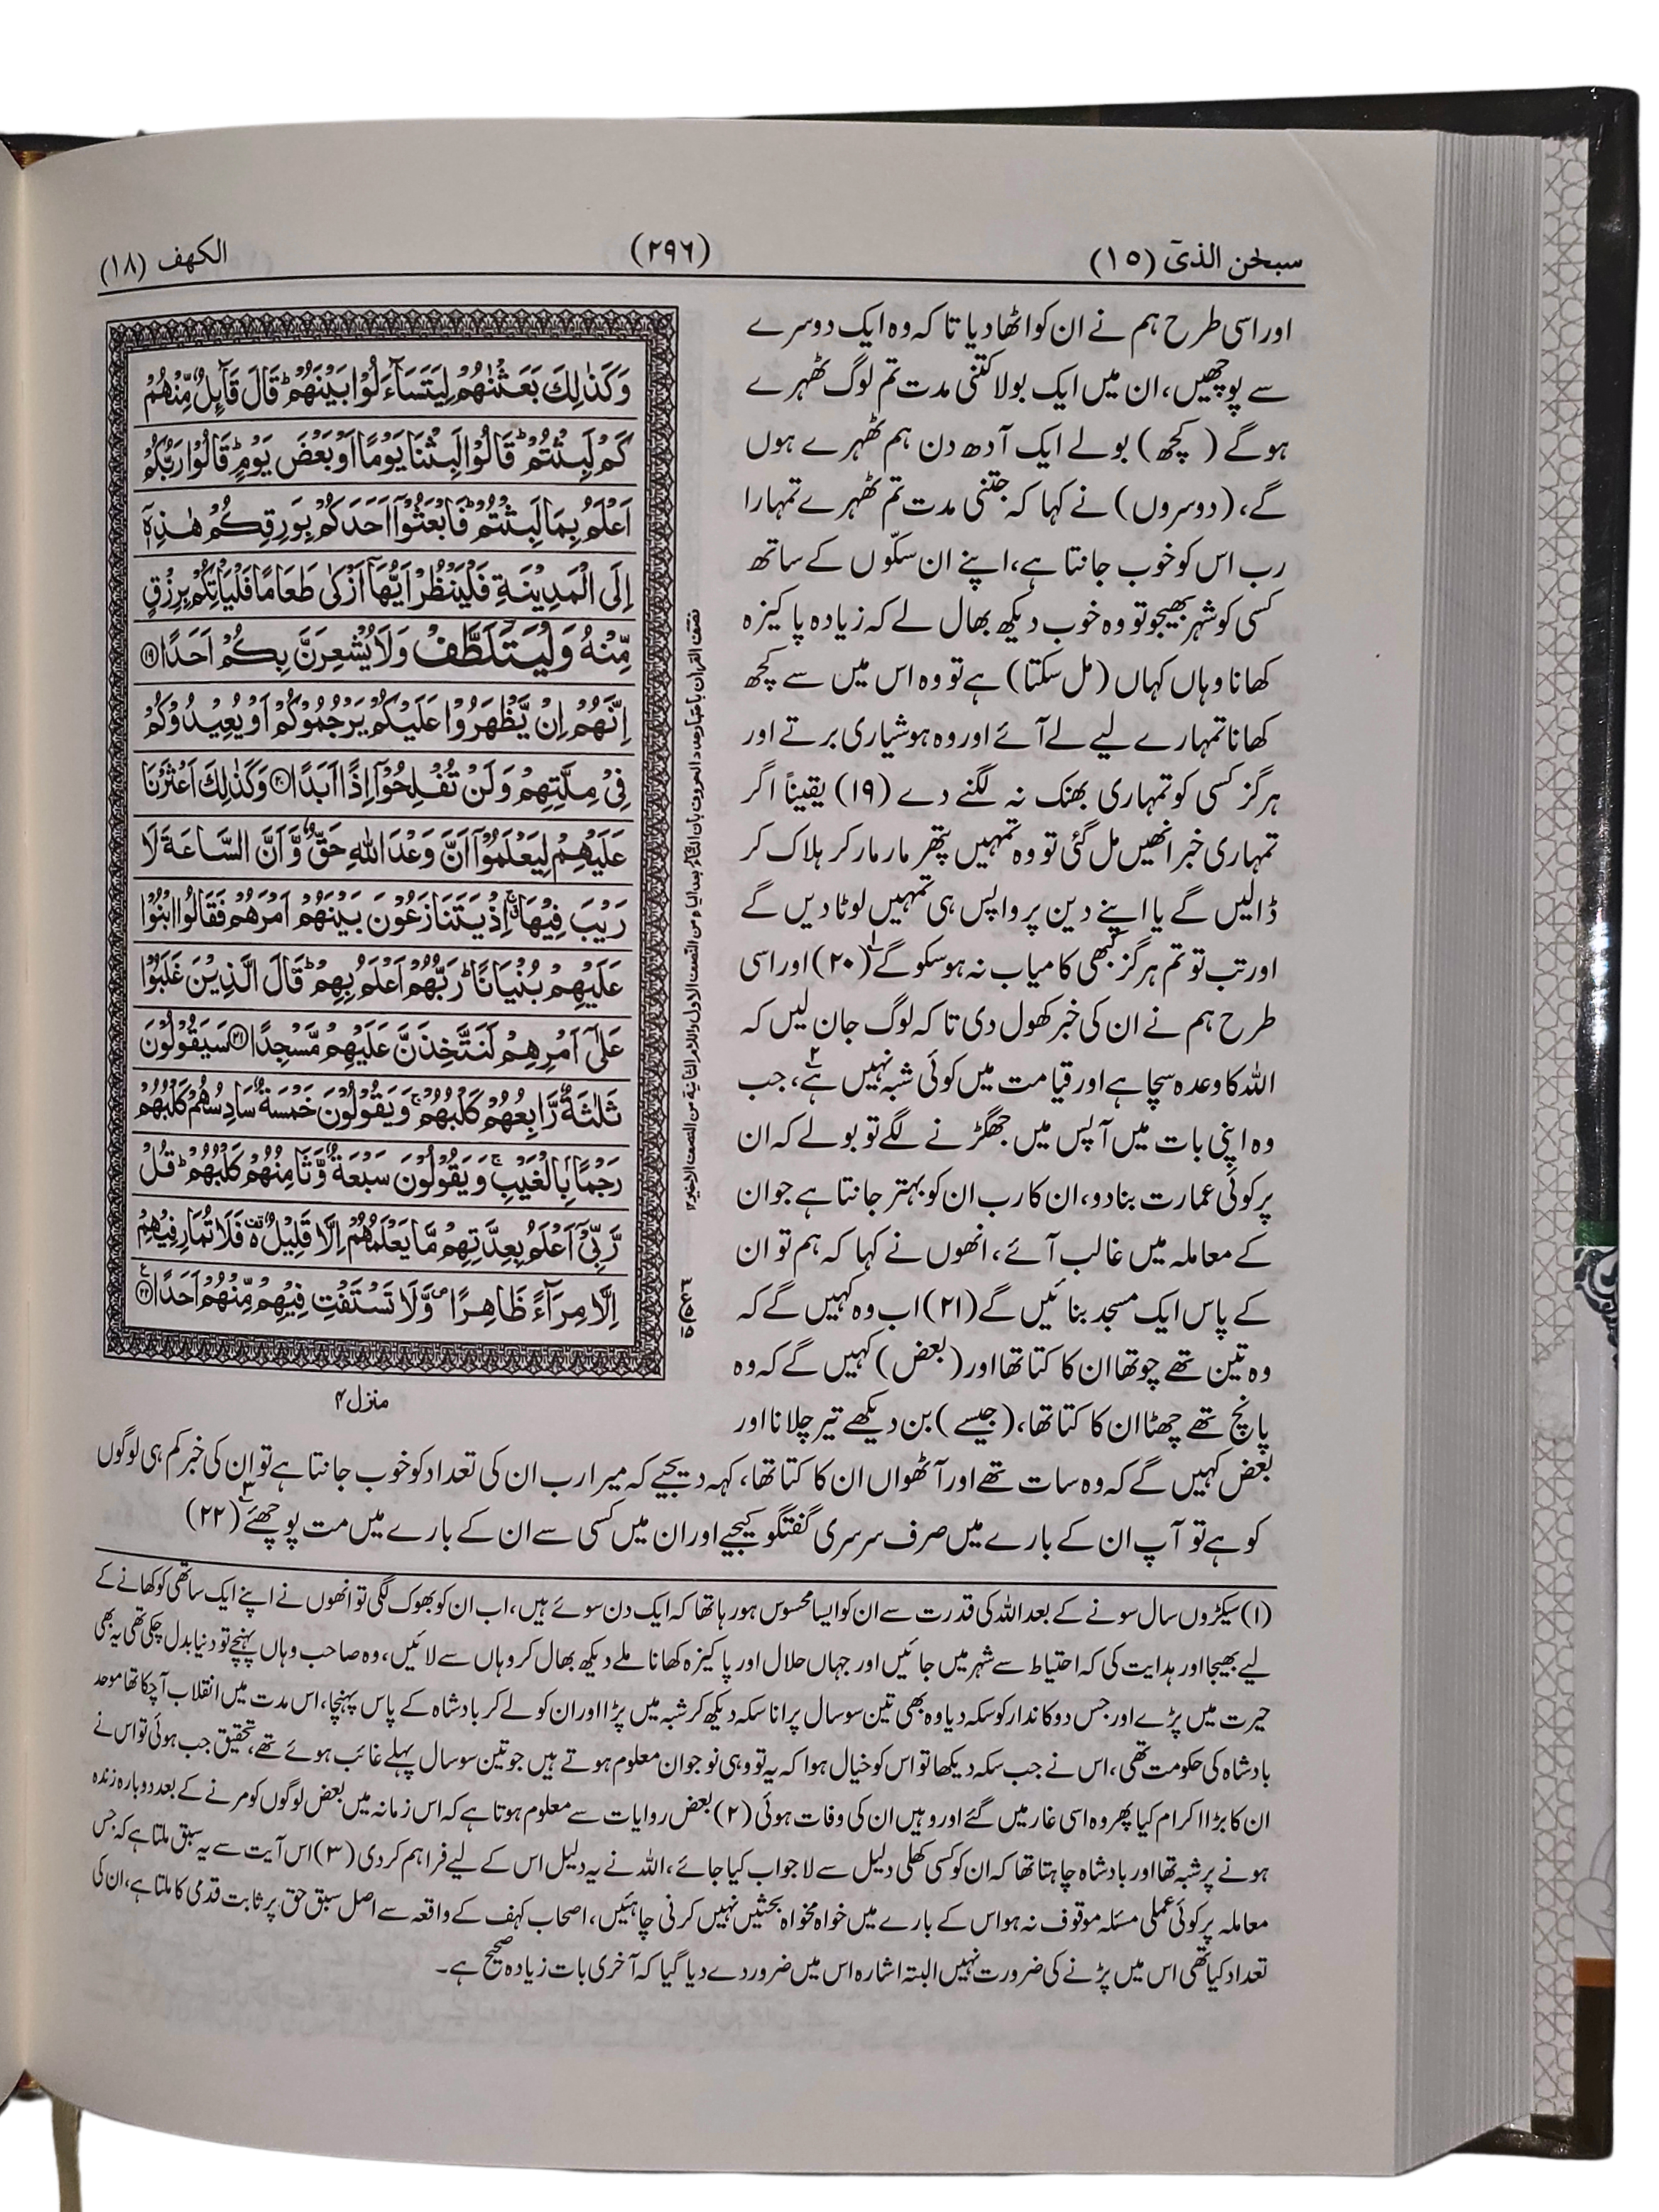 سبحٰن الذیٓ (۱۵)
(۲۹۶)
الکھف (۱۸)
اور اسی طرح ہم نے ان کو اٹھا دیا تا کہ وہ ایک دوسرے
سے پوچھیں، ان میں ایک بولا کتنی مدت تم لوگ ٹھہرے
ہوگے (کچھ) بولے ایک آدھ دن ہم ٹھہرے ہوں
گے، (دوسروں) نے کہا کہ جتنی مدت تم ٹھہرے تمہارا
رب اس کو خوب جانتا ہے، اپنے ان سکّوں کے ساتھ
کسی کو شہر بھیجو تو وہ خوب دیکھ بھال لے کہ زیادہ پاکیزہ
کھانا وہاں کہاں (مل سکتا) ہے تو وہ اس میں سے کچھ
کھانا تمہارے لیے لے آئے اور وہ ہوشیاری برتے اور
ہرگز کسی کو تمہاری بھنک نہ لگنے دے (۱۹) یقیناً اگر
تمہاری خبر انھیں مل گئی تو وہ تمہیں پتھر مار مار کر ہلاک کر
ڈالیں گے یا اپنے دین پر واپس ہی تمہیں لوٹا دیں گے
اور تب تو تم ہرگز کبھی کامیاب نہ ہو سکو گے۱ (۲۰) اور اسی
طرح ہم نے ان کی خبر کھول دی تا کہ لوگ جان لیں کہ
اللہ کا وعدہ سچا ہے اور قیامت میں کوئی شبہ نہیں ہے۲، جب
وہ اپنی بات میں آپس میں جھگڑنے لگے تو بولے کہ ان
پر کوئی عمارت بنا دو، ان کا رب ان کو بہتر جانتا ہے جو ان
کے معاملہ میں غالب آئے، انھوں نے کہا کہ ہم تو ان
کے پاس ایک مسجد بنائیں گے (۲۱) اب وہ کہیں گے کہ
وہ تین تھے چوتھا ان کا کتا تھا اور (بعض) کہیں گے کہ وہ
پانچ تھے چھٹا ان کا کتا تھا، (جیسے) بن دیکھے تیر چلانا اور
بعض کہیں گے کہ وہ سات تھے اور آٹھواں ان کا کتا تھا، کہہ دیجیے کہ میرا رب ان کی تعداد کو خوب جانتا ہے تو ان کی خبر کم ہی لوگوں
کو ہے تو آپ ان کے بارے میں صرف سرسری گفتگو کیجیے اور ان میں کسی سے ان کے بارے میں مت پوچھئے۳ (۲۲)
وَكَذٰلِكَ بَعَثْنٰهُمْ لِيَتَسَآءَلُوْا بَيْنَهُمْ ؕ قَالَ قَآئِلٌ مِّنْهُمْ
كَمْ لَبِثْتُمْ ؕ قَالُوْا لَبِثْنَا يَوْمًا اَوْ بَعْضَ يَوْمٍ ؕ قَالُوْا رَبُّكُمْ
اَعْلَمُ بِمَا لَبِثْتُمْ ؕ فَابْعَثُوْۤا اَحَدَكُمْ بِوَرِقِكُمْ هٰذِهٖۤ
اِلَى الْمَدِيْنَةِ فَلْيَنْظُرْ اَيُّهَاۤ اَزْكٰى طَعَامًا فَلْيَاْتِكُمْ بِرِزْقٍ
مِّنْهُ وَلْيَتَلَطَّفْ وَلَا يُشْعِرَنَّ بِكُمْ اَحَدًا ۝۱۹
اِنَّهُمْ اِنْ يَّظْهَرُوْا عَلَيْكُمْ يَرْجُمُوْكُمْ اَوْ يُعِيْدُوْكُمْ
فِيْ مِلَّتِهِمْ وَلَنْ تُفْلِحُوْۤا اِذًا اَبَدًا ۝۲۰ وَكَذٰلِكَ اَعْثَرْنَا
عَلَيْهِمْ لِيَعْلَمُوْۤا اَنَّ وَعْدَ اللّٰهِ حَقٌّ وَّاَنَّ السَّاعَةَ لَا
رَيْبَ فِيْهَا ۚ اِذْ يَتَنَازَعُوْنَ بَيْنَهُمْ اَمْرَهُمْ فَقَالُوا ابْنُوْا
عَلَيْهِمْ بُنْيَانًا ؕ رَبُّهُمْ اَعْلَمُ بِهِمْ ؕ قَالَ الَّذِيْنَ غَلَبُوْا
عَلٰۤى اَمْرِهِمْ لَنَتَّخِذَنَّ عَلَيْهِمْ مَّسْجِدًا ۝۲۱ سَيَقُوْلُوْنَ
ثَلٰثَةٌ رَّابِعُهُمْ كَلْبُهُمْ ۚ وَيَقُوْلُوْنَ خَمْسَةٌ سَادِسُهُمْ كَلْبُهُمْ
رَجْمًۢا بِالْغَيْبِ ۚ وَيَقُوْلُوْنَ سَبْعَةٌ وَّثَامِنُهُمْ كَلْبُهُمْ ؕ قُلْ
رَّبِّيْۤ اَعْلَمُ بِعِدَّتِهِمْ مَّا يَعْلَمُهُمْ اِلَّا قَلِيْلٌ ۫ فَلَا تُمَارِ فِيْهِمْ
اِلَّا مِرَآءً ظَاهِرًا ۪ وَّلَا تَسْتَفْتِ فِيْهِمْ مِّنْهُمْ اَحَدًا ۝۲۲
منزل ۴
(۱) سیکڑوں سال سونے کے بعد اللہ کی قدرت سے ان کو ایسا محسوس ہو رہا تھا کہ ایک دن سوئے ہیں، اب ان کو بھوک لگی تو انھوں نے اپنے ایک ساتھی کو کھانے کے
لیے بھیجا اور ہدایت کی کہ احتیاط سے شہر میں جائیں اور جہاں حلال اور پاکیزہ کھانا ملے دیکھ بھال کر وہاں سے لائیں، وہ صاحب وہاں پہنچے تو دنیا بدل چکی تھی یہ بھی
حیرت میں پڑے اور جس دوکاندار کو سکہ دیا وہ بھی تین سو سال پرانا سکہ دیکھ کر شبہ میں پڑا اور ان کو لے کر بادشاہ کے پاس پہنچا، اس مدت میں انقلاب آچکا تھا موحد
بادشاہ کی حکومت تھی، اس نے جب سکہ دیکھا تو اس کو خیال ہوا کہ یہ تو وہی نوجوان معلوم ہوتے ہیں جو تین سو سال پہلے غائب ہوئے تھے، تحقیق جب ہوئی تو اس نے
ان کا بڑا اکرام کیا پھر وہ اسی غار میں گئے اور وہیں ان کی وفات ہوئی (۲) بعض روایات سے معلوم ہوتا ہے کہ اس زمانہ میں بعض لوگوں کو مرنے کے بعد دوبارہ زندہ
ہونے پر شبہ تھا اور بادشاہ چاہتا تھا کہ ان کو کسی کھلی دلیل سے لاجواب کیا جائے، اللہ نے یہ دلیل اس کے لیے فراہم کردی (۳) اس آیت سے یہ سبق ملتا ہے کہ جس
معاملہ پر کوئی عملی مسئلہ موقوف نہ ہو اس کے بارے میں خواہ مخواہ بحثیں نہیں کرنی چاہئیں، اصحاب کہف کے واقعہ سے اصل سبق حق پر ثابت قدمی کا ملتا ہے، ان کی
تعداد کیا تھی اس میں پڑنے کی ضرورت نہیں البتہ اشارہ اس میں ضرور دے دیا گیا کہ آخری بات زیادہ صحیح ہے۔